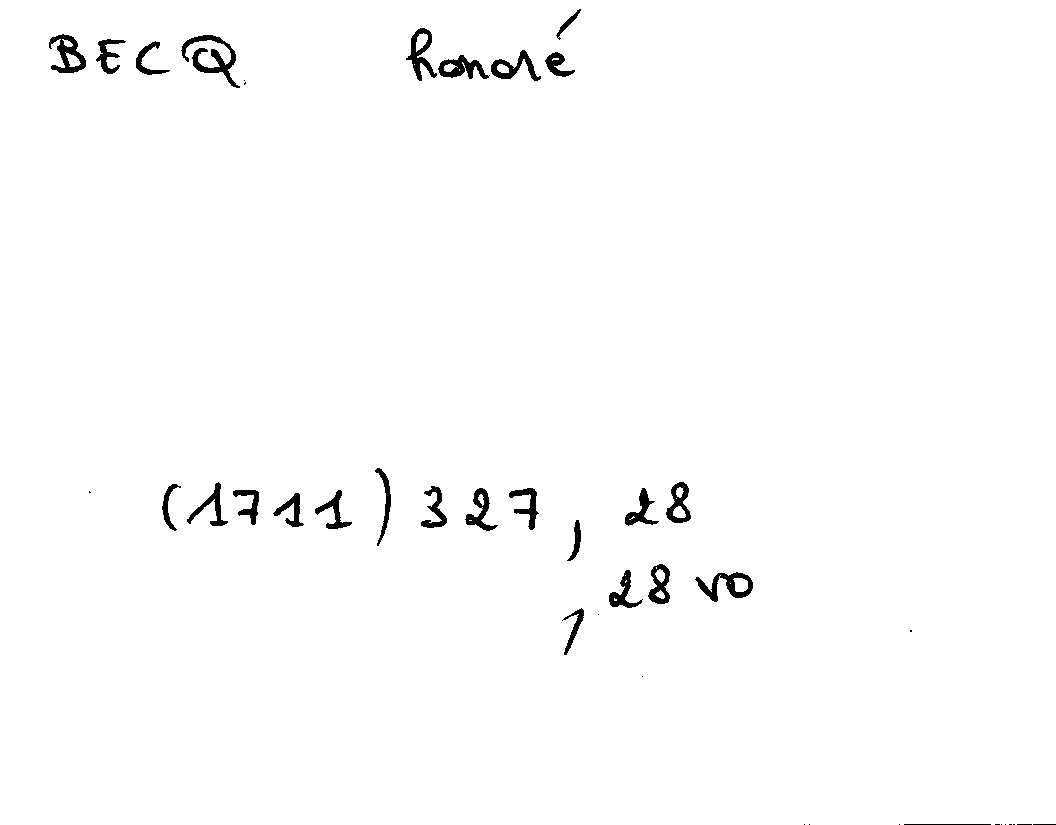 BECQ honoré
(1711) 327, 28
, 28 vo